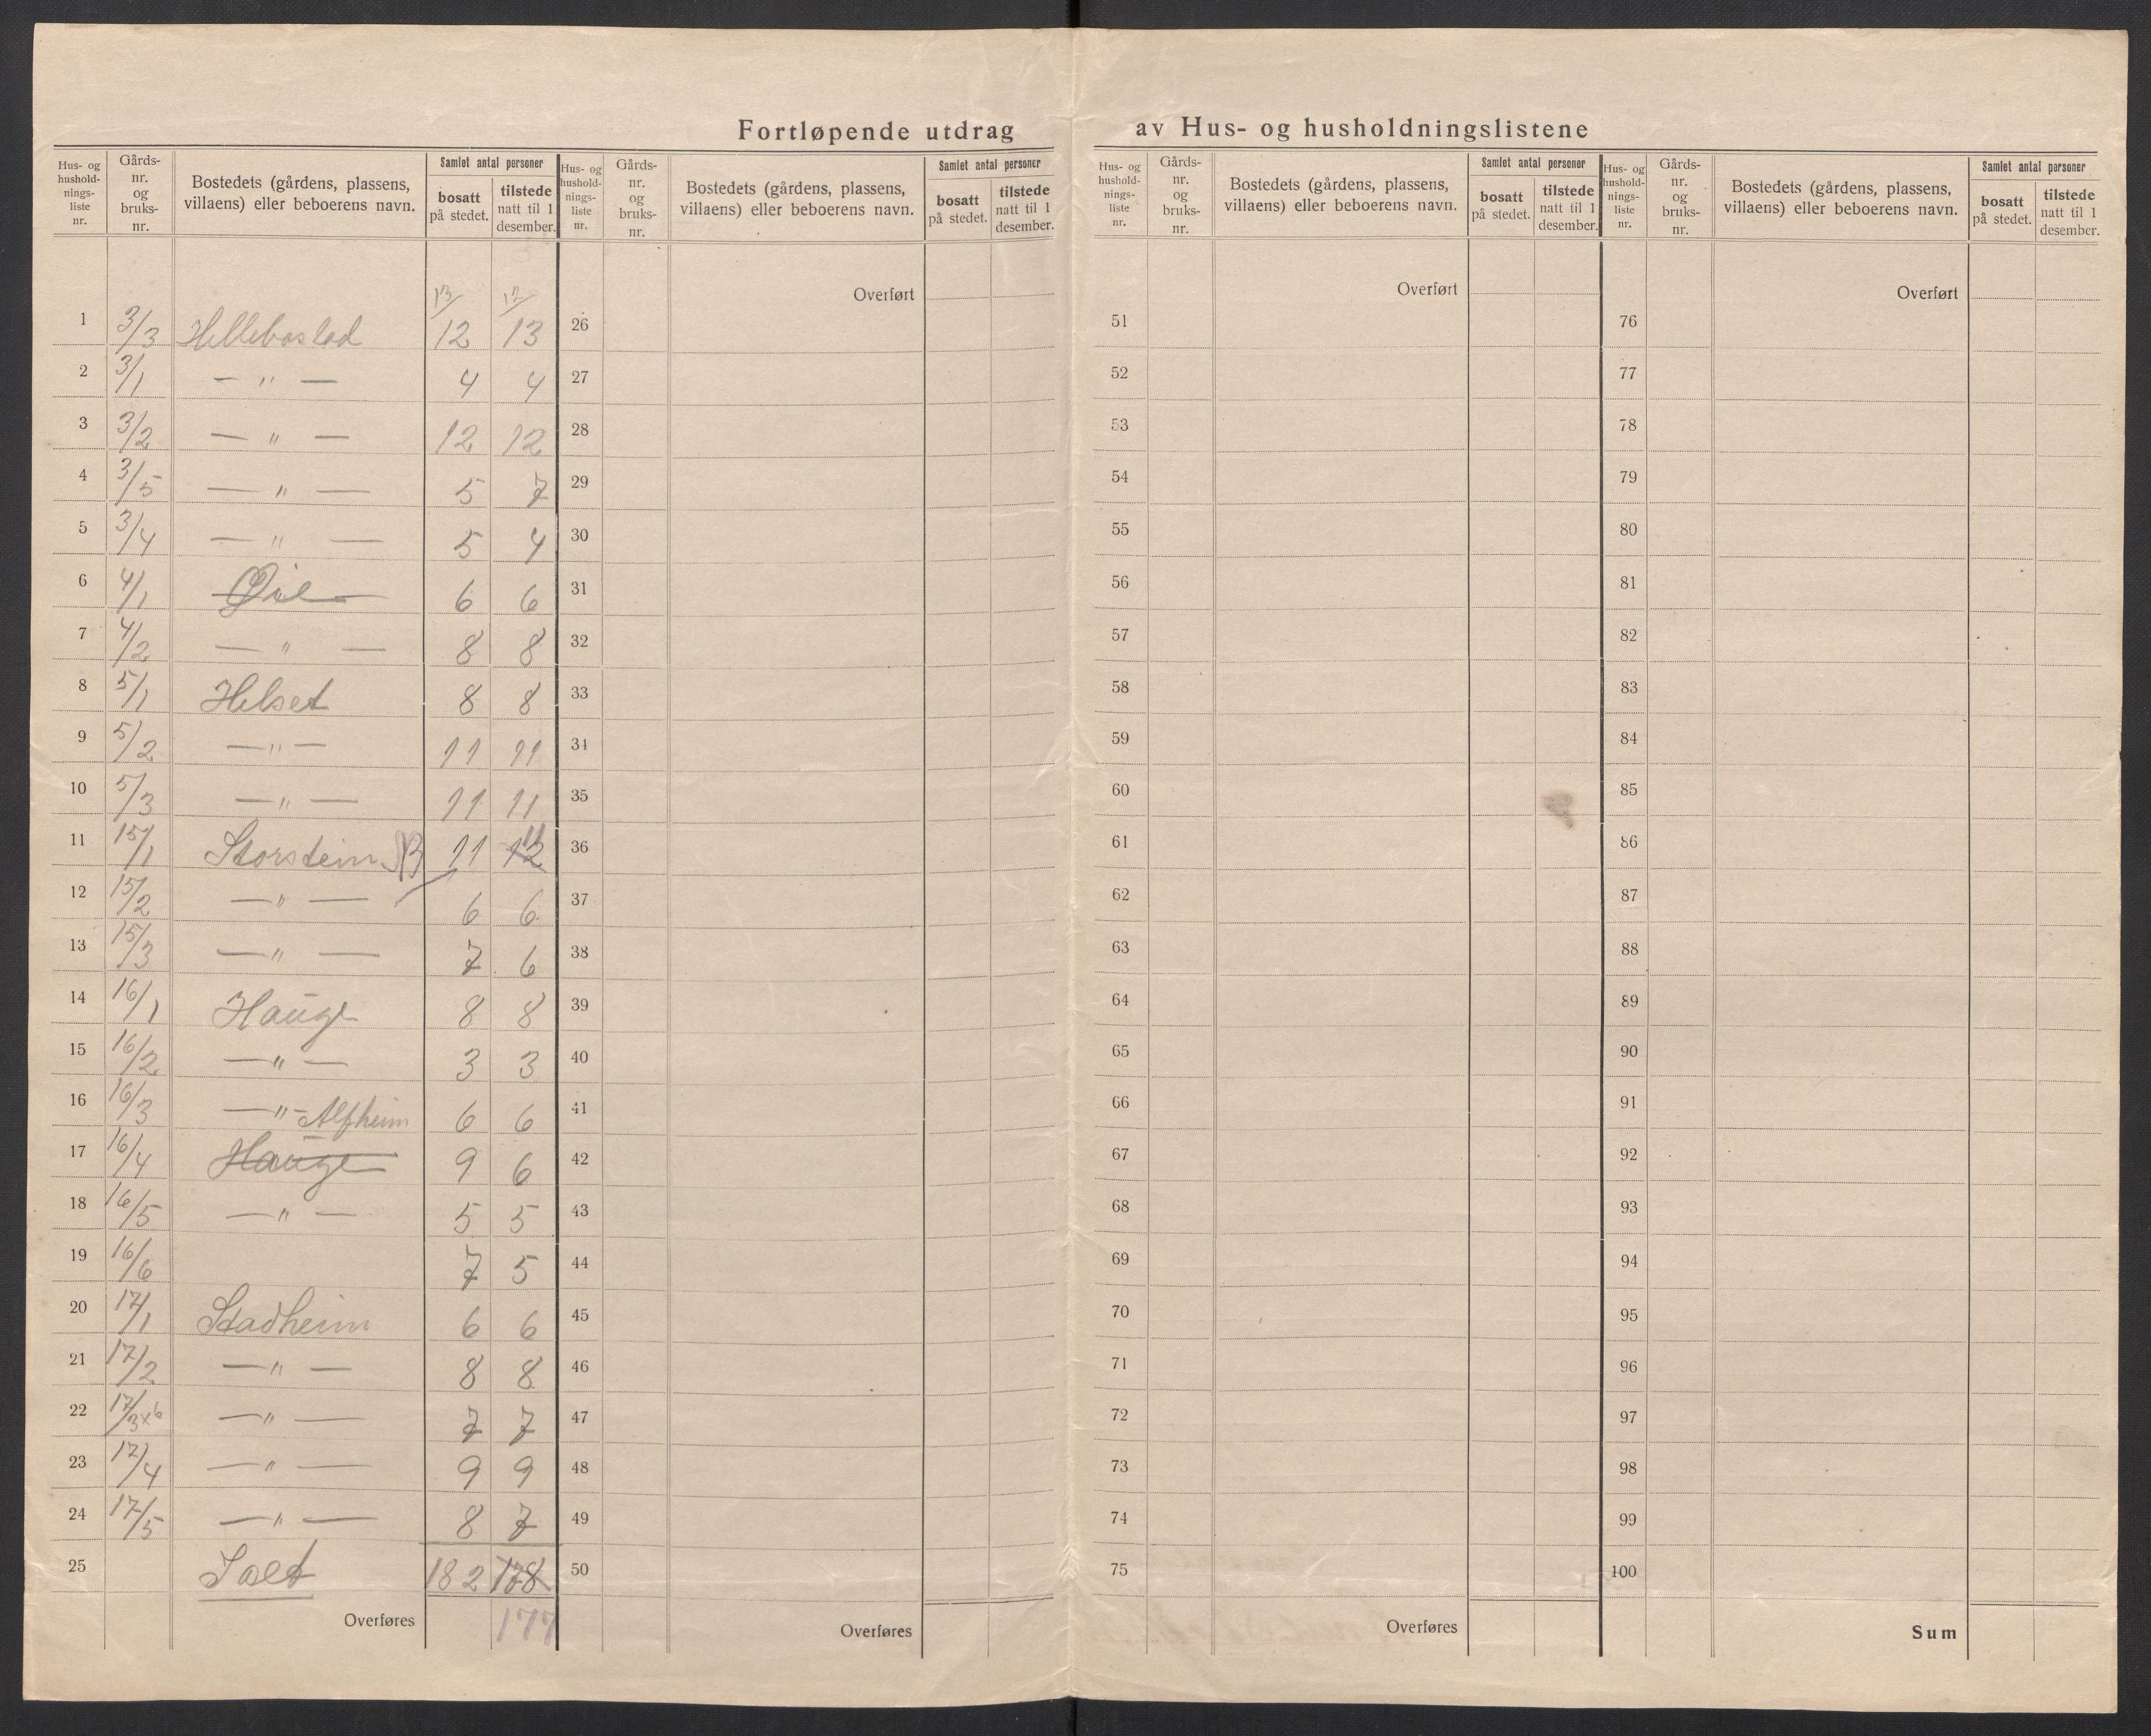 Fortløpende utdrag av Hus- og husholdningslistene
Hus- og hushold- nings- liste nr. | Gårds- nr. og bruks- nr. | Bostedets (gårdens, plassens, villaens) eller beboerens navn. | Samlet antal personer | bosatt på stedet. | tilstede natt til 1 desember.
Hus- og hushold- nings- liste nr. | Gårds- nr. og bruks- nr. | Bostedets (gårdens, plassens, villaens) eller beboerens navn. | Samlet antal personer | bosatt på stedet. | tilstede natt til 1 desember.
Hus- og hushold- nings- liste nr. | Gårds- nr. og bruks- nr. | Bostedets (gårdens, plassens, villaens) eller beboerens navn. | Samlet antal personer | bosatt på stedet. | tilstede natt til 1 desember.
Hus- og hushold- nings- liste nr. | Gårds- nr. og bruks- nr. | Bostedets (gårdens, plassens, villaens) eller beboerens navn. | Samlet antal personer | bosatt på stedet. | tilstede natt til 1 desember.
13/ 12/ Overført Overført Overført
1 3/3 Hellebostad 12 13 26 51 76
2 3/1 — " — 4 4 27 52 77
3 3/2 — " — 12 12 28 53 78
4 3/5 — " — 5 7 29 54 79
5 3/4 — " — 5 4 30 55 80
6 4/1 Øie 6 6 31 56 81
7 4/2 — " — 8 8 32 57 82
8 5/1 Helset 8 8 33 58 83
9 5/2 — " — 11 11 34 59 84
10 5/3 — " — 11 11 35 60 85
11 15/1 Storstein 11 12 11 36 61 86
12 15/2 — " — 6 6 37 62 87
13 15/3 — " — 7 6 38 63 88
14 16/1 Hauge 8 8 39 64 89
15 16/2 — " — 3 3 40 65 90
16 16/3 — " — Alfheim 6 6 41 66 91
17 16/4 Hauge 9 6 42 67 92
18 16/5 — " — 5 5 43 68 93
19 16/6 7 5 44 69 94
20 17/1 Stadheim 6 6 45 70 95
21 17/2 — " — 8 8 46 71 96
22 17/3x6 — " — 7 7 47 72 97
23 17/4 — " — 9 9 48 73 98
24 17/5 — " — 8 7 49 74 99
25 Ialt 182 178 50 75 100
Overføres 177 Overføres Overføres Sum